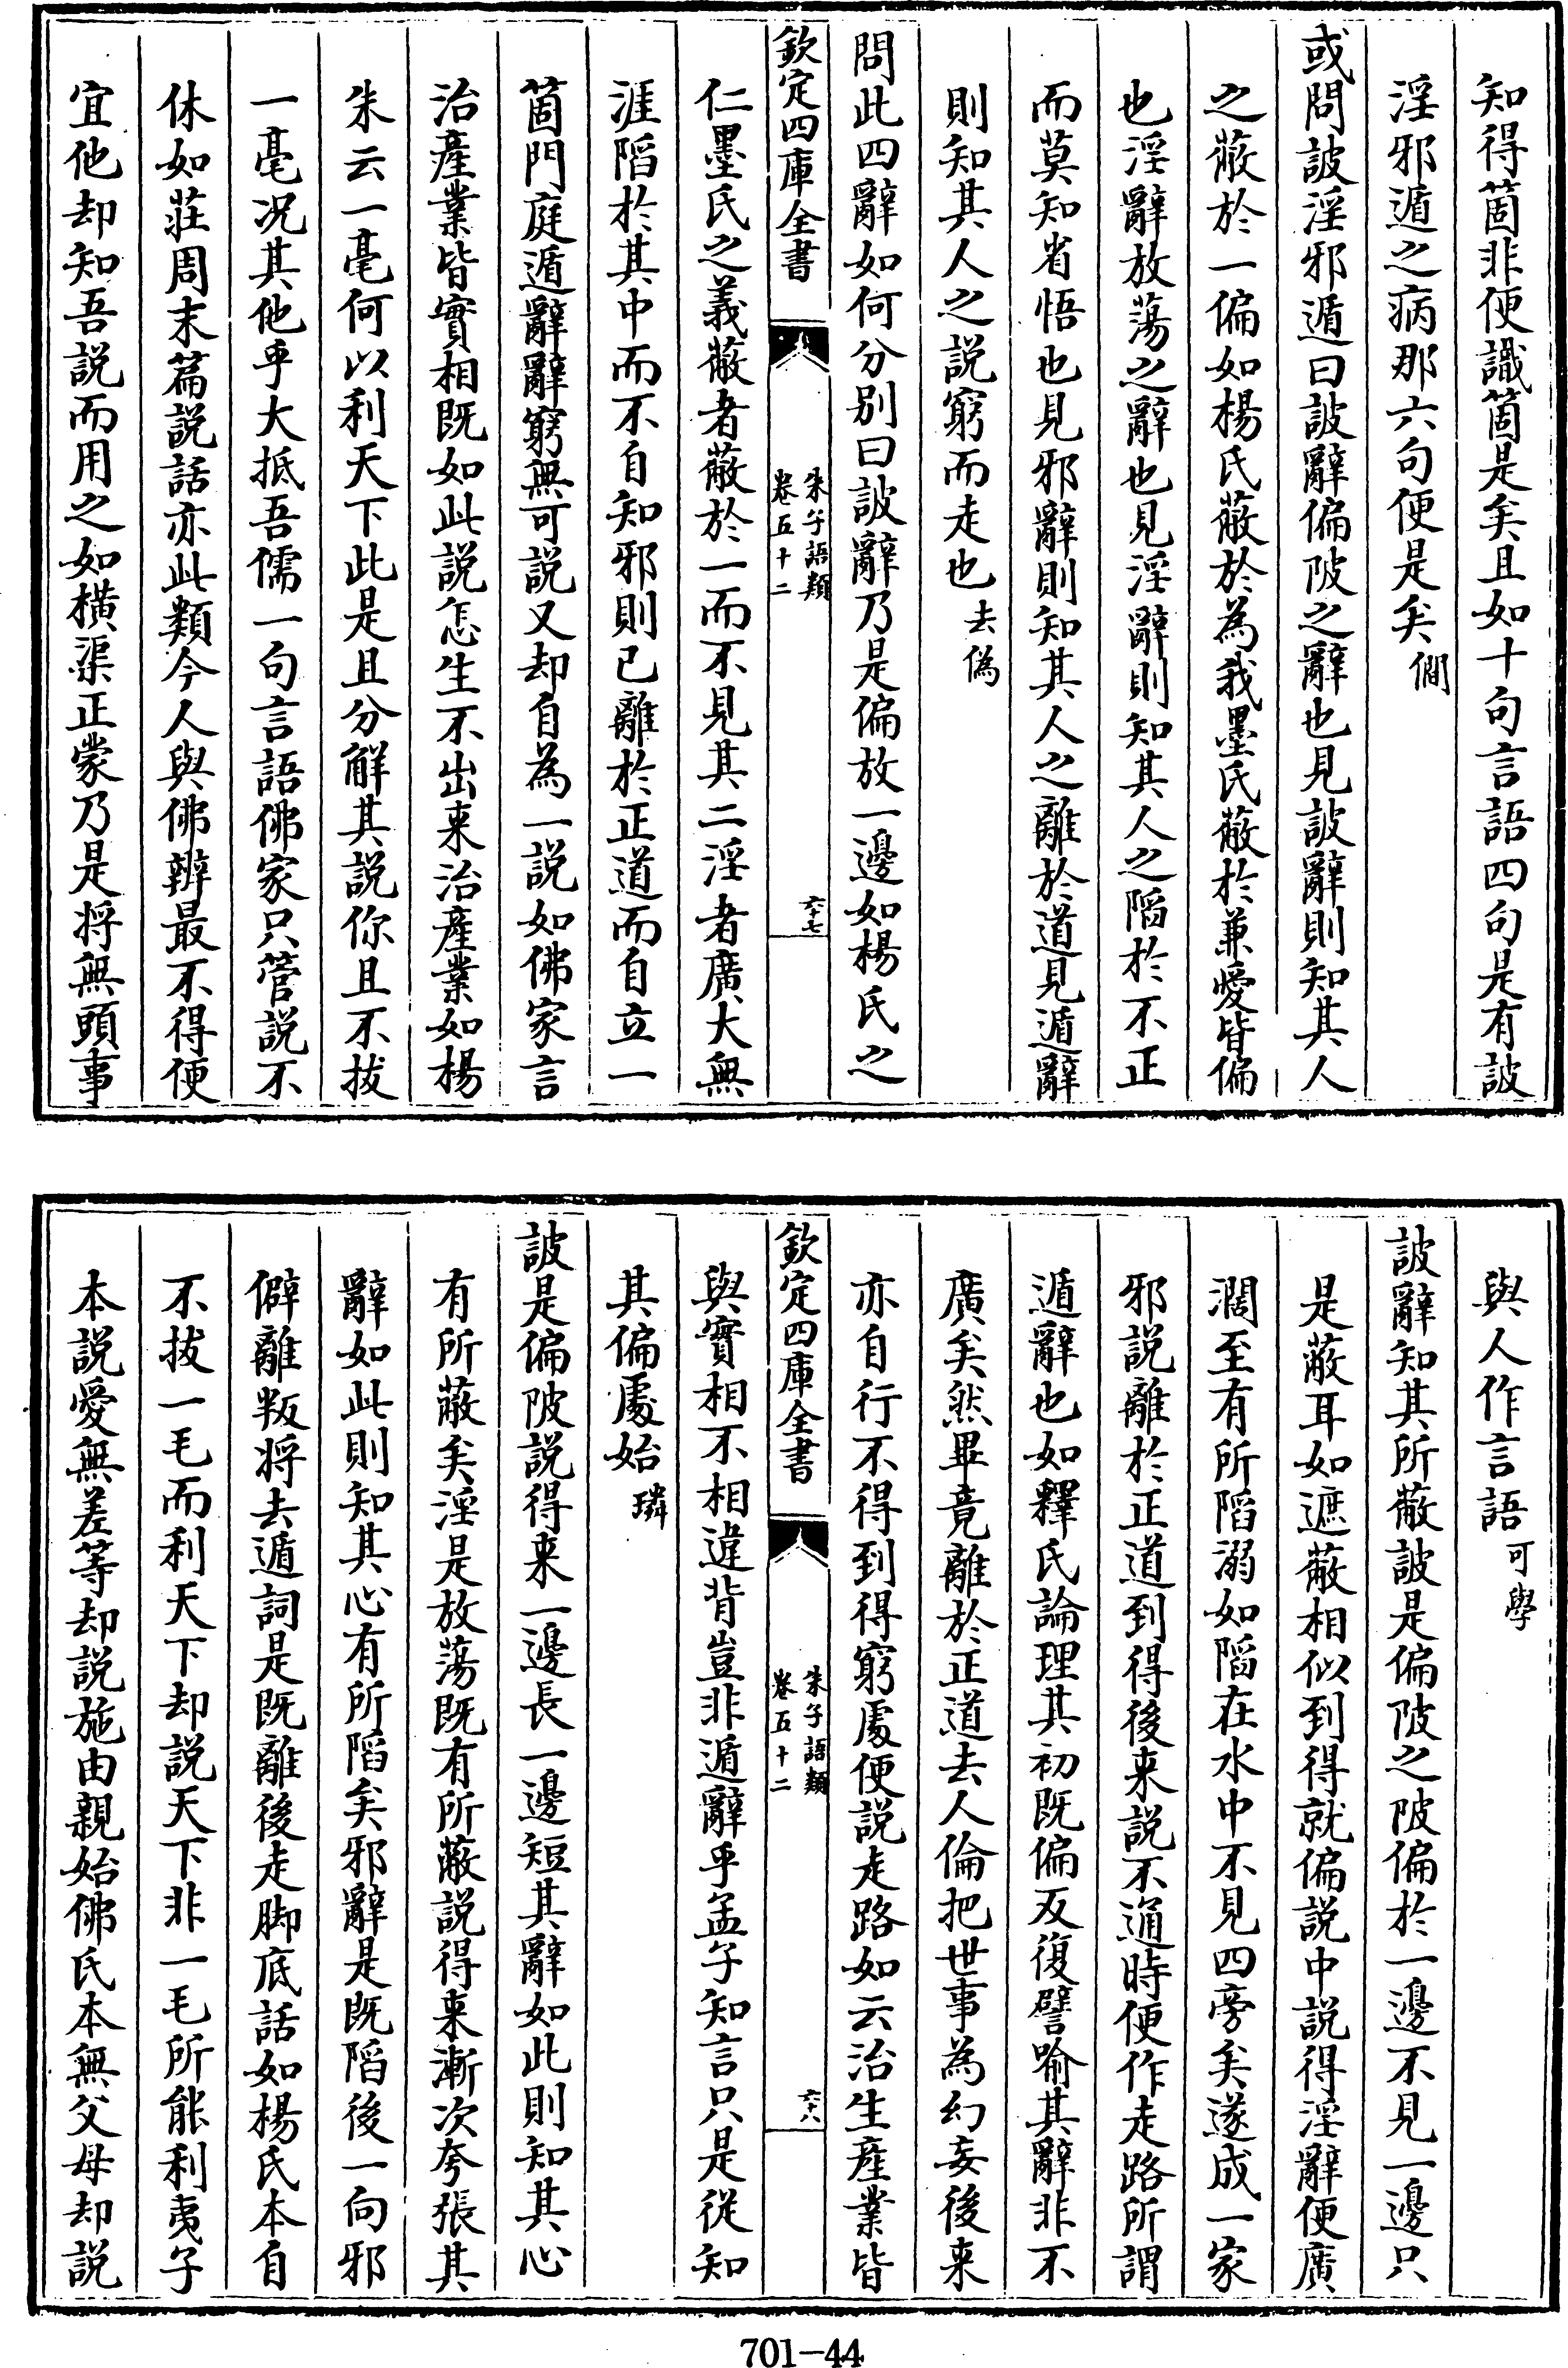 知得箇非便識箇是矣且如十句言語四句是有詖
淫邪遁之病那六句便是矣 僩
或問詖淫邪遁曰詖辭偏陂之辭也見詖辭則知其人
之蔽於一偏如楊氏蔽於為我墨氏蔽於兼愛皆偏
也淫辭放蕩之辭也見淫辭則知其人之陷於不正
而莫知省悟也見邪辭則知其人之離於道見遁辭
則知其人之説窮而走也 去偽
問此四辭如何分别曰詖辭乃是偏放一邊如楊氏之
欽定四庫全書 朱子語類 卷五十二 六十七
仁墨氏之義蔽者蔽於一而不見其二淫者廣大無
涯陷於其中而不自知邪則已離於正道而自立一
箇門庭遁辭辭窮無可説又却自為一説如佛家言
治產業皆實相既如此説怎生不出来治產業如楊
朱云一毫何以利天下此是且分觧其説你且不拔
一毫况其他乎大抵吾儒一句言語佛家只管説不
休如莊周末篇説話亦此類今人與佛辨最不得便
宜他却知吾説而用之如橫渠正蒙乃是将無頭事
與人作言語 可學
詖辭知其所蔽詖是偏陂之陂偏於一邊不見一邊只
是蔽耳如遮蔽相似到得就偏説中説得淫辭便廣
濶至有所陷溺如陷在水中不見四旁矣遂成一家
邪説離於正道到得後来説不通時便作走路所謂
遁辭也如釋氏論理其初既偏反復譬喻其辭非不
廣矣然畢竟離於正道去人倫把世事為幻妄後来
亦自行不得到得窮處便説走路如云治生産業皆
欽定四庫全書 朱子語類 卷五十二 六十八
與實相不相違背豈非遁辭乎孟子知言只是從知
其偏處始 璘
詖是偏陂説得来一邊長一邊短其辭如此則知其心
有所蔽矣淫是放蕩既有所蔽説得来漸次夸張其
辭如此則知其心有所陷矣邪辭是既陷後一向邪
僻離叛将去遁詞是既離後走脚底話如楊氏本自
不拔一毛而利天下却説天下非一毛所能利夷子
本説愛無差等却説施由親始佛氏本無父母却説
701-44